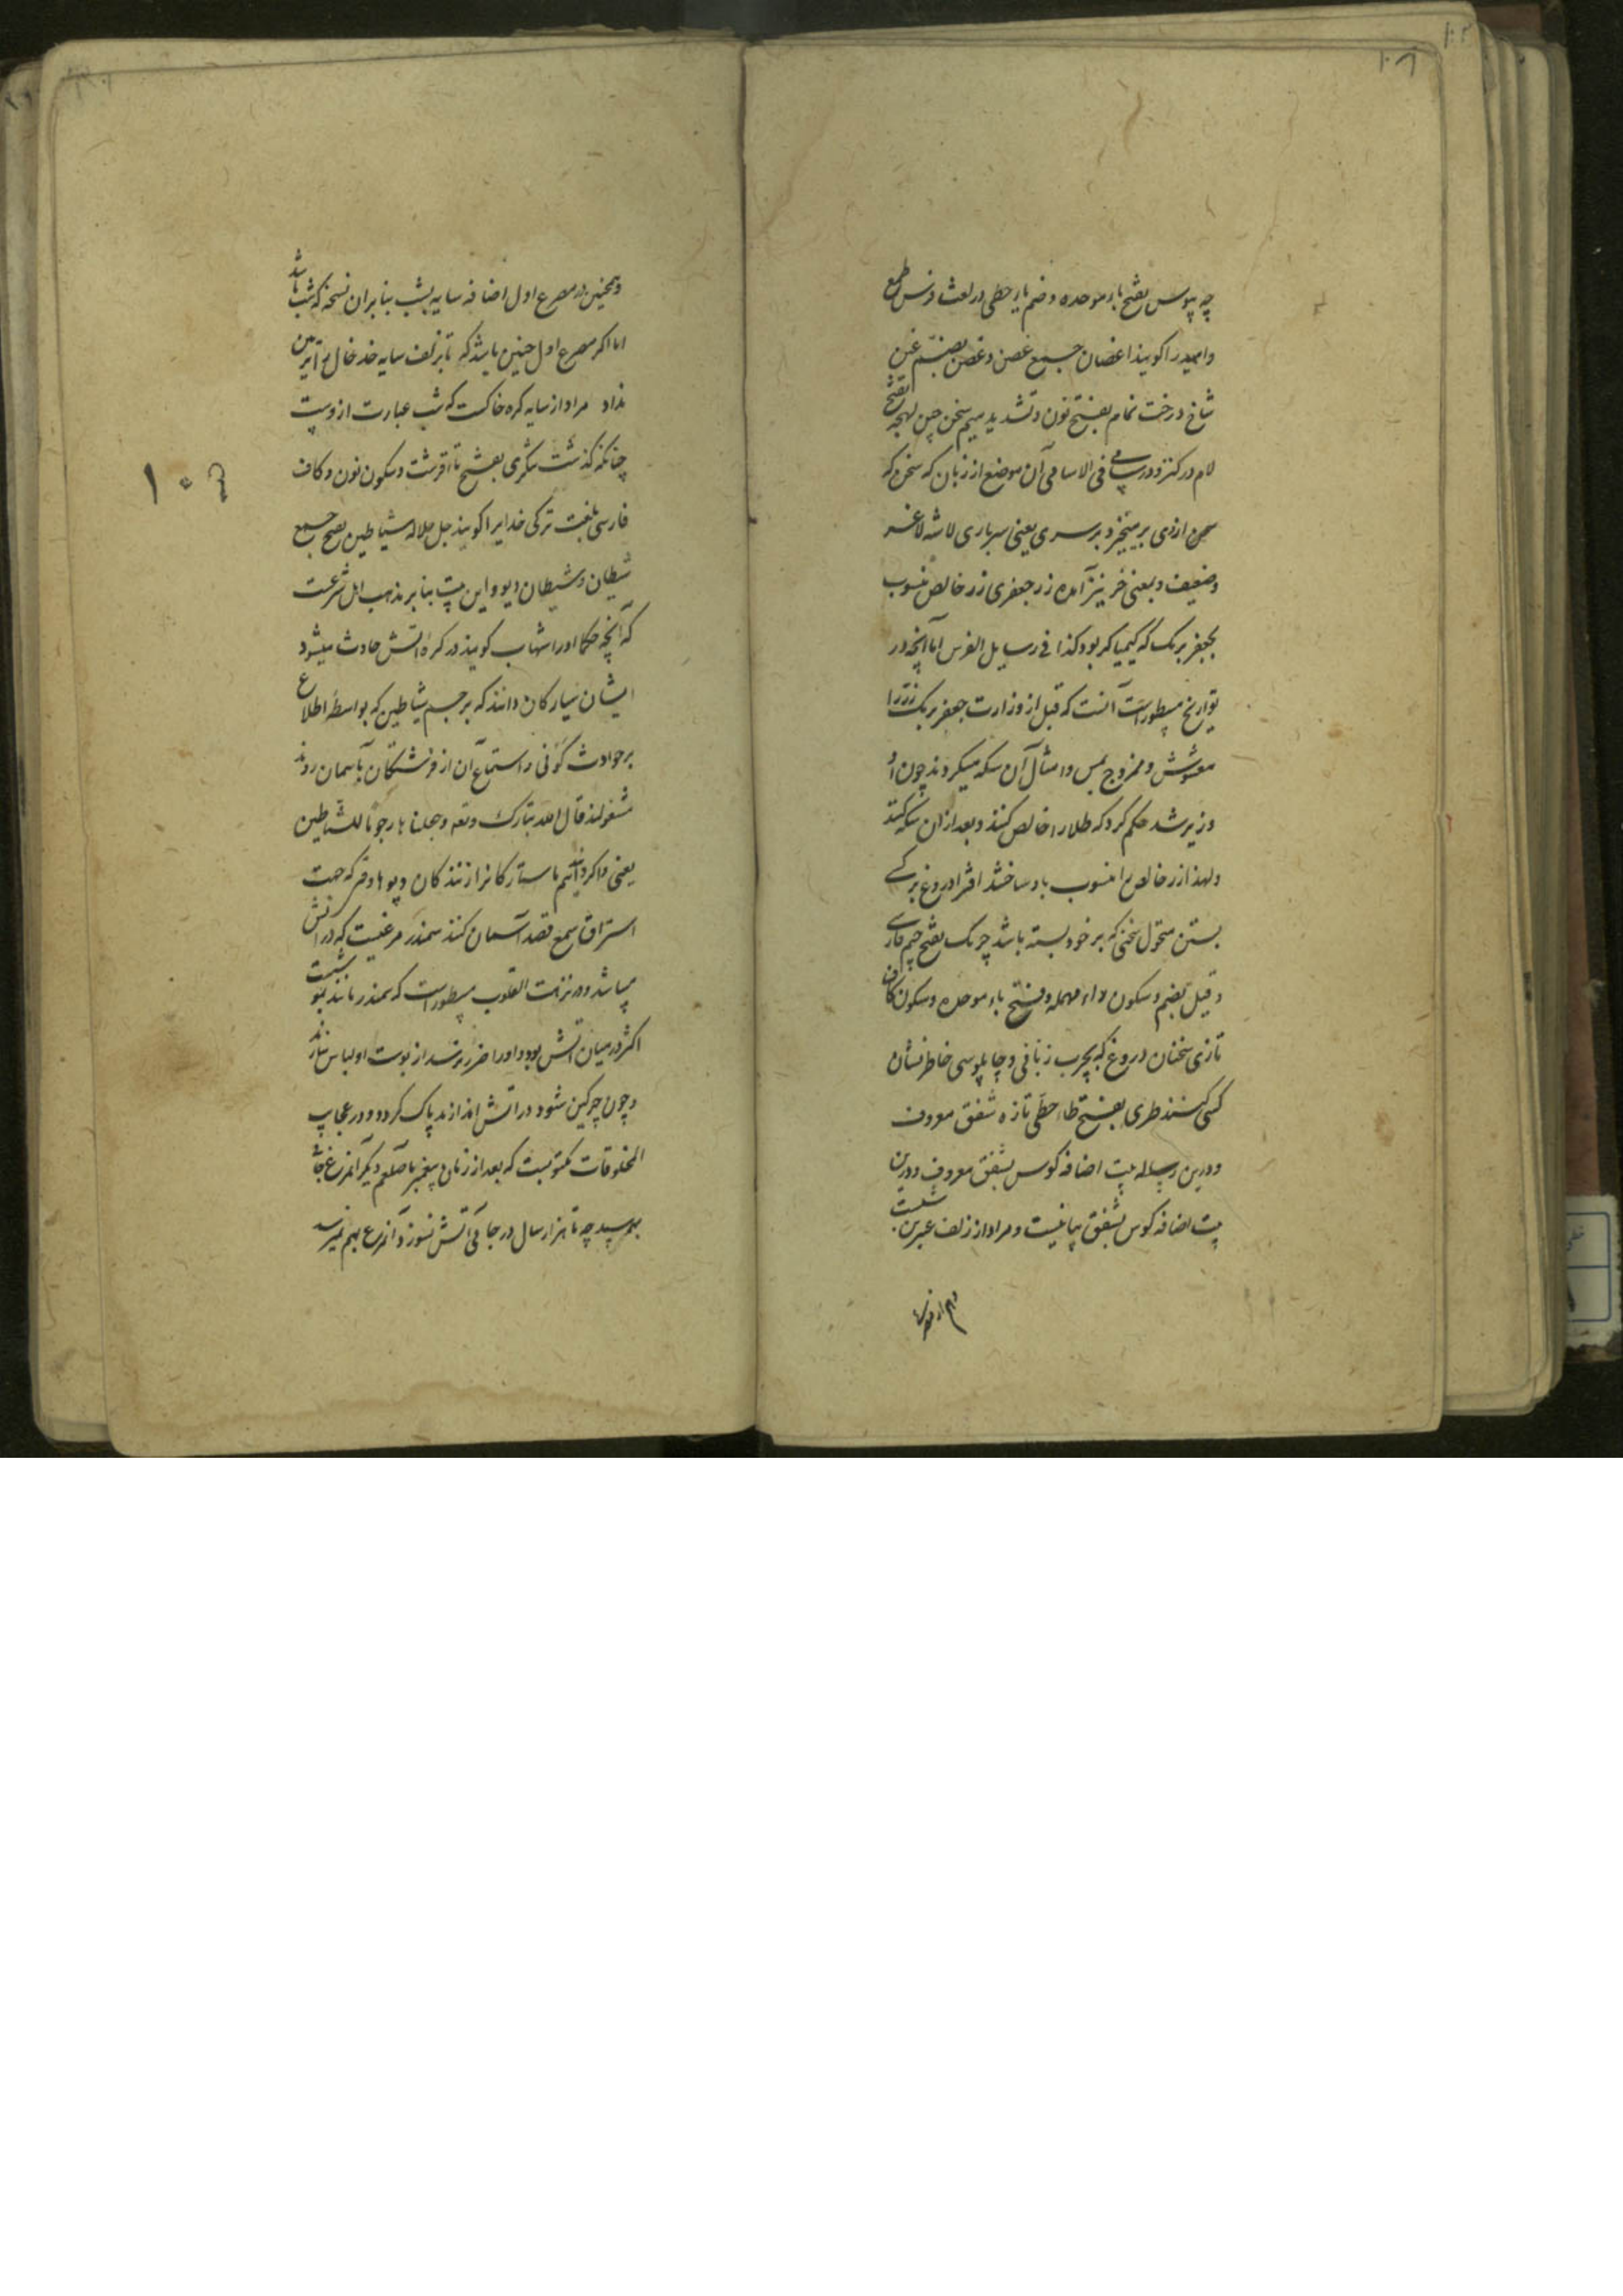 چه بیوس بفتح باء موحده و ضم یاء حطی در لغت فرس طمع
و امید را گویند اغصان جمیع غصن و غصن بضم غین
شاخ درخت نمام بفتح نون و تشدید میم سخن چین لهجه بفتح
لام در کنز و در سامی فی الاسامی آن موضع از زبان که سخن که
سخن ازوی برمیخیزد برسری یعنی سرباری لاشه لاغر
و ضعیف و بمعنی خر نیز آمده زر جعفری زر خالص منسوب
بجعفر برمک که کیمیاکر بود کذا فی رسایل الفرس اما آنچه در
تواریخ مسطور است آنست که قبل از وزارت جعفر برمک زر را
مغشوش و ممزوج بمس و امثال آن سکه میکردند چون او
وزیر شد حکم کرد که طلا را خالص کنند و بعد از ان سکه کنند
و لهذا زر خالص را منسوب باو ساختند افترا دروغ بر کسی
بستن متحول سخنی که بر خود بسته باشد چربک بفتح جیم فارسی
و قیل بضم و سکون راء مهمله و فتح باء موحده و سکون کاف
تازی سخنان دروغ که بچرب زبانی و چاپلوسی خاطر نشان
کسی کنند طری بفتح طاء حطی تازه شفق معروف
و درین رساله بیت اضافه کوس بشفق معروف و درین
بیت اضافه کوس بشفق بیانیست و مراد از زلف عبرین شبست
و همچنین در مصرع اول اضافه سایه بشب بنابران نسخه که شب باشد
اما اکر مصرع اول چنین باشد که تا بزلف سایه خد خال
نداد مراد از سایه کره خاکست که شب عبارت ازوست
چنانکه کذشت تنکری بفتح تاء قرشت و سکون نون و کاف
فارسی بلغت ترکی خدایرا کویند جل جلاله شیاطین بفتح جمع
شیطان و شیطان دیو و این بیت بنابر مذهب اهل شرعست
که آنچه حکما اورا شهاب کویند در کره آتش حادث میشود
ایشان سیارکان دانند که برجم شیاطین که بواسطه اطلاع
برحوادث کونی و استماع آن از فرشتکان بآسمان روند
مشغولند قال الله تبارک و تعه وجعلنا ها رجوما للشیاطین
یعنی و اکردانیدیم ما ستارکانرا رانندکان دیوها وقتی که جهت
استراق سمع قصد آسمان کنند سمندر مرغیست که در آتش
میباشد و در نزهت القلوب مسطور است که سمندر مانند
اکثر در میان آتش بود و اورا ضرر نرسد از پوست او لباس سازند
و چون چرکین شود در آتش اندازند پاک کردد و در عجایب
المخلوقات مکتوبست که بعد از زمان پیغمبر ما صلعم دیکر آنمرغ
چه تا هزار سال در جائی آتش نسوزد آنمرغ بهم نمیرسد